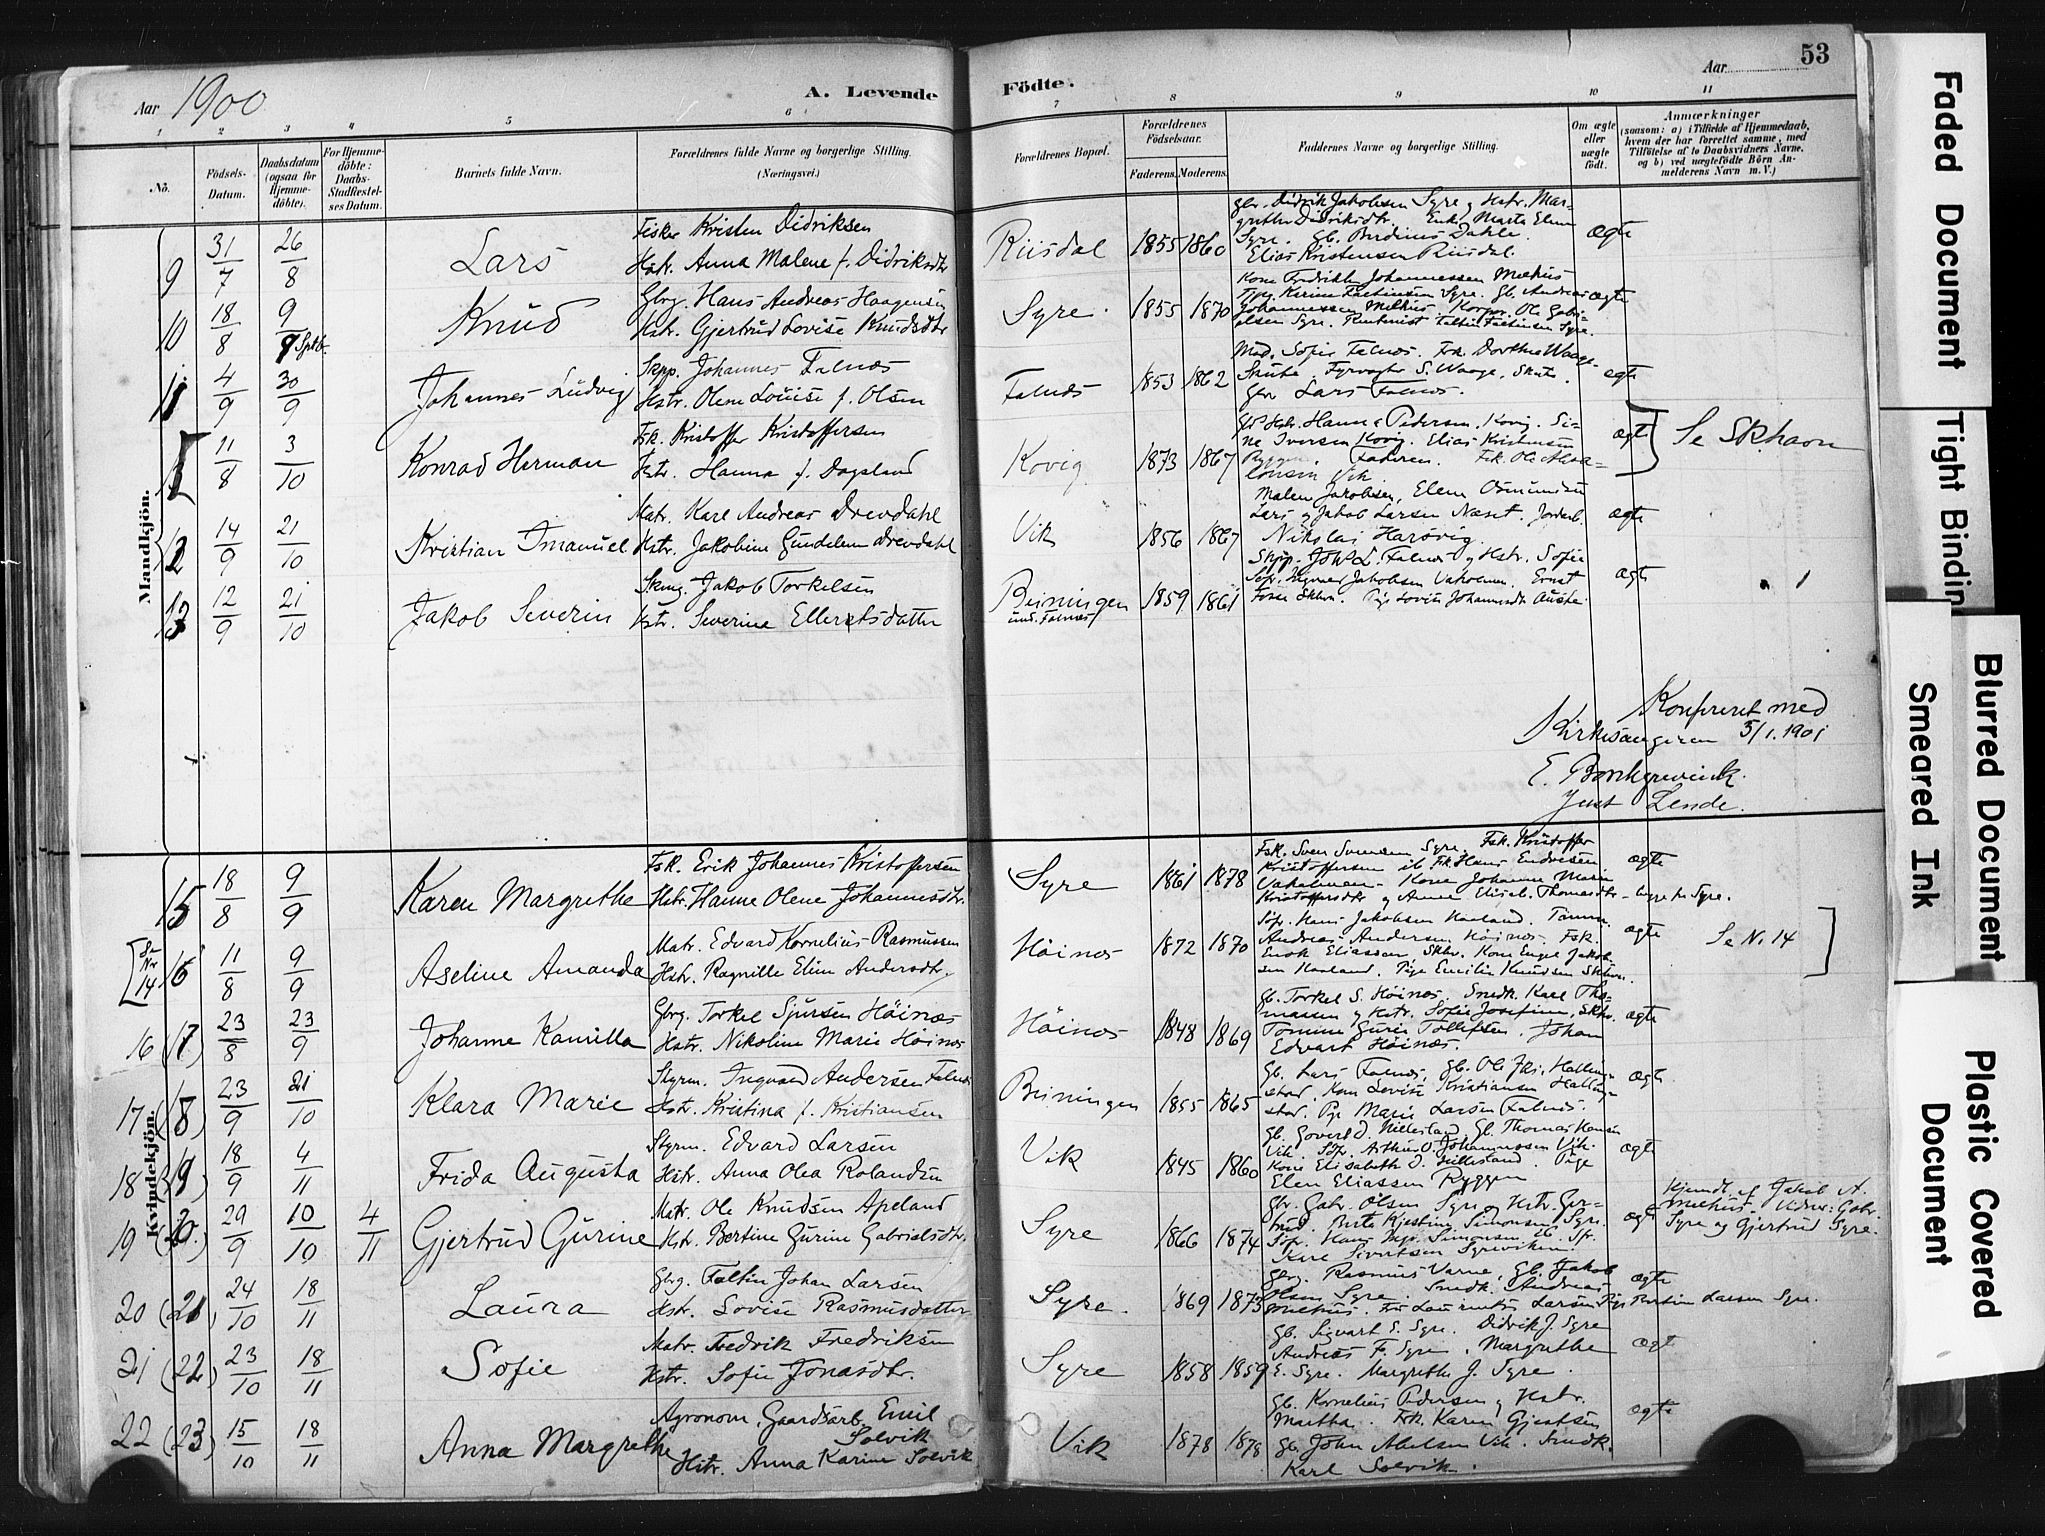 53
Aar 1900
A. Levende
Födte.
Aar
1 2 3 4 5 6 7 8 9 10 11
Nö.
Födsels-
Datum.
Daabsdatum
(ogsaa for
Hjemme-
döbte).
For Hjemme-
döbte:
Daabs-
Stadfæstel-
ses Datum.
Barnets fulde Navn.
Forældrenes fulde Navne og borgerlige Stilling.
(Næringsvei.)
Forældrenes Bopæl.
Forældrenes
Födselsaar.
Faderens. Moderens.
Faddernes Navne og borgerlige Stilling.
Om ægte
eller
uægte
födt.
Anmærkninger
(saasom: a) i Tilfælde af Hjemmedaab,
hvem der har forrettet samme, med
Tilföielse af to Daabsvidners Navne,
og b) ved uægtefödte Börn An-
melderens Navn m. V.)
Mandkjön.
9 31/7 26/8 Lars
Fisker Kristen Didriksen
Hstr. Anna Malene f. Didriksdtr
Riisdal 1855 1860
gbr. Didrik Jakobsen Syre og Hstr. Mar-
grethe Didriksdtr. Enke Marta Elene
Syre. Gb. Berdinus Dahle.
Elias Kristensen Riisdal.
ægte
10 18/8 9/9 Sptb. Knud
Gbrg. Hans Andreas Haagensen
Hstr. Gjertrud Lovise Knudsdtr
Syre. 1855 1870
Kone Fredrikke Johannessen Mælhus
Syre. Gb. Andreas
Johannessen Mælhus. Ole Gabri-
elsen Syre.
ægte
11 4/9 30/9 Johannes Ludvig
Skpp. Johannes Falnæs
Hstr. Olene Louise f. Olsen
Falnæs 1853 1862
Mad. Sofie Falnæs. Frk. Dorthea Waage
Skude. Fyrvagter S. Waage, Skude.
Gbr Lars Falnæs.
ægte
11/8 3/10 Konrad Herman
Fsk. Kristoffer Kristoffersen
Hstr. Hanna f. Dagsland
Kovig 1873 1867
Hstr. Hanne Pedersen, Kovig. Si-
ne Iversen Kovig. Elias Kristensen
Ryggen. Faderen. Fsk. Ole
Vik
ægte
Se Skhavn
12 14/9 21/10 Kristian Imanuel
Matr. Karl Andreas Drevdahl
Hstr. Jakobine Gundelene Drevdahl
Vik 1856 1867
Malene Jakobsen, Elene Osmundsen
Lars og Jakob Larsen Næset. Jordarb.
Nikolai Hasøvig.
ægte
13 12/9 21/10 Jakob Severin
Jakob Torkelsen
Hstr. Severine Ellertsdatter
Beiningen
und. Falnæs
1859 1861
Skpp. Joh. L. Falnæs og Hstr. Sofie
Søfr. Ingvald Jakobsen Vakolmen. Ernst
Fosse Skhvn. Pige Lovise Johannesdtr
ægte
Konfereret med
Kirkesangeren 5/1. 1901
E. Borchgrevinck.
Just Lende.
Kvindekjön.
15 18/8 9/9 Karen Margrethe
Fsk. Erik Johannes Kristoffersen
Hstr. Hanne Olene Johannesdtr.
Syre 1861 1878
Fsk. Sven Svensen Syre. Fsk. Kristoffer
Kristoffersen ib. Fsk. Hans Endresen
Vakolmen. Kone Johanne Marie
Kristoffersdtr og Anne Elisab. Thomasdtr - begge fr. Syre.
ægte
Se
Nr
14
16 11/8 9/9 Aseline Amanda
Matr. Edvard Kornelius Rasmussen
Hstr. Ragnille Eline Andersdtr.
Høinæs 1872 1870
Søfr. Hans Jakobsen Haaland. Tømm.
Andreas Andersen Høinæs. Fsk.
Enok Eliassen, Skhv. Kone Engel Jakob-
sen Haaland, Pige Emilie Knudsen Skhvn.
ægte
Se N. 14
16 (17) 23/8 23/9 Johanne Kamilla
Gbrg. Torkel Sjursen Høinæs
Hstr. Nikoline Marie Høinæs
Høinæs 1848 1869
Gb. Torkel S. Høinæs. Snedk. Karl Tho-
massen og Hstr. Sofie Josefine, Skhv.
Tomine Gurie Tollefsen, Johan
Edvart Høinæs.
ægte
17 (18) 23/9 21/10 Klara Marie
Styrm. Ingvald Andersen Falnæs
Hstr. Kristina f. Kristiansen
Beiningen 1855 1865
Gb. Lars Falnæs, Gb. Ole Halling-
stad, Kone Levise Kristiansen Halling-
stad. Pge Marie Larsen Falnæs.
ægte
18 (19) 18/9 4/11 Frida Augusta
Styrm. Edvard Larsen
Hstr. Anna Olea Rolandsen
Vik 1845 1860
Gb. Govert D. Hillesland, Gb. Thomas Hansen
Vik. Søfr. Johannessen Vik.
Kone Elisabeth D. Hillesland. Pige
Elen Eliassen Ryggen
ægte
19 (20) 29/9 10/10 4/11 Gjertrud Gurine
Matr. Ole Knudsen Apeland
Hstr. Bertine Gurine Gabrielsdtr.
Syre 1866 1874
Gbr. Gabr. Olsen Syre og Hstr. Ger-
trud. Berte Kjestine Simonsen, Syre.
Søfr. Hans Simonsen ib.
Sivertsen Syreviken.
ægt
Hjemdt. af Jakob A.
Mælhus. Vidner: Gabr.
Syre og Gjertrud Syre.
20 (21) 24/10 18/11 Laura
Gbrg. Faltin Johan Larsen
Hstr. Lovise Rasmusdatter
Syre. 1869 1873
Gbrg. Rasmus Varne, Gb. Jakob
Olsen Syre. Snedk. Andreas
Mælhus. Laurentze Larsen Pige Bertine Larsen Syre.
ægte
21 (22) 23/10 18/11 Sofie
Matr. Fredrik Fredriksen
Hstr. Sofie Jonasdtr.
Syre 1858 1859
Gb. Sigvart E. Syre. Didrik J. Syre
Andreas F. Syre, Margrethe
E. Syre. Margrethe J. Syre.
ægt
22 (23) 15/10 18/11 Anna Margrethe
Agronom, Gaardsarb. Emil
Solvik
Hstr. Anna Karine Solvik
Vik 1878 1878
Gb. Kornelius Pedersen og Hstr.
Martha. Frk. Karen Gjertsen
Gb. John Abelsen Vik. Snedk.
Karl Solvik.
ægte
Faded Document
Tight Bindin
Blurred Document
Smeared Ink
Plastic Covered
Document